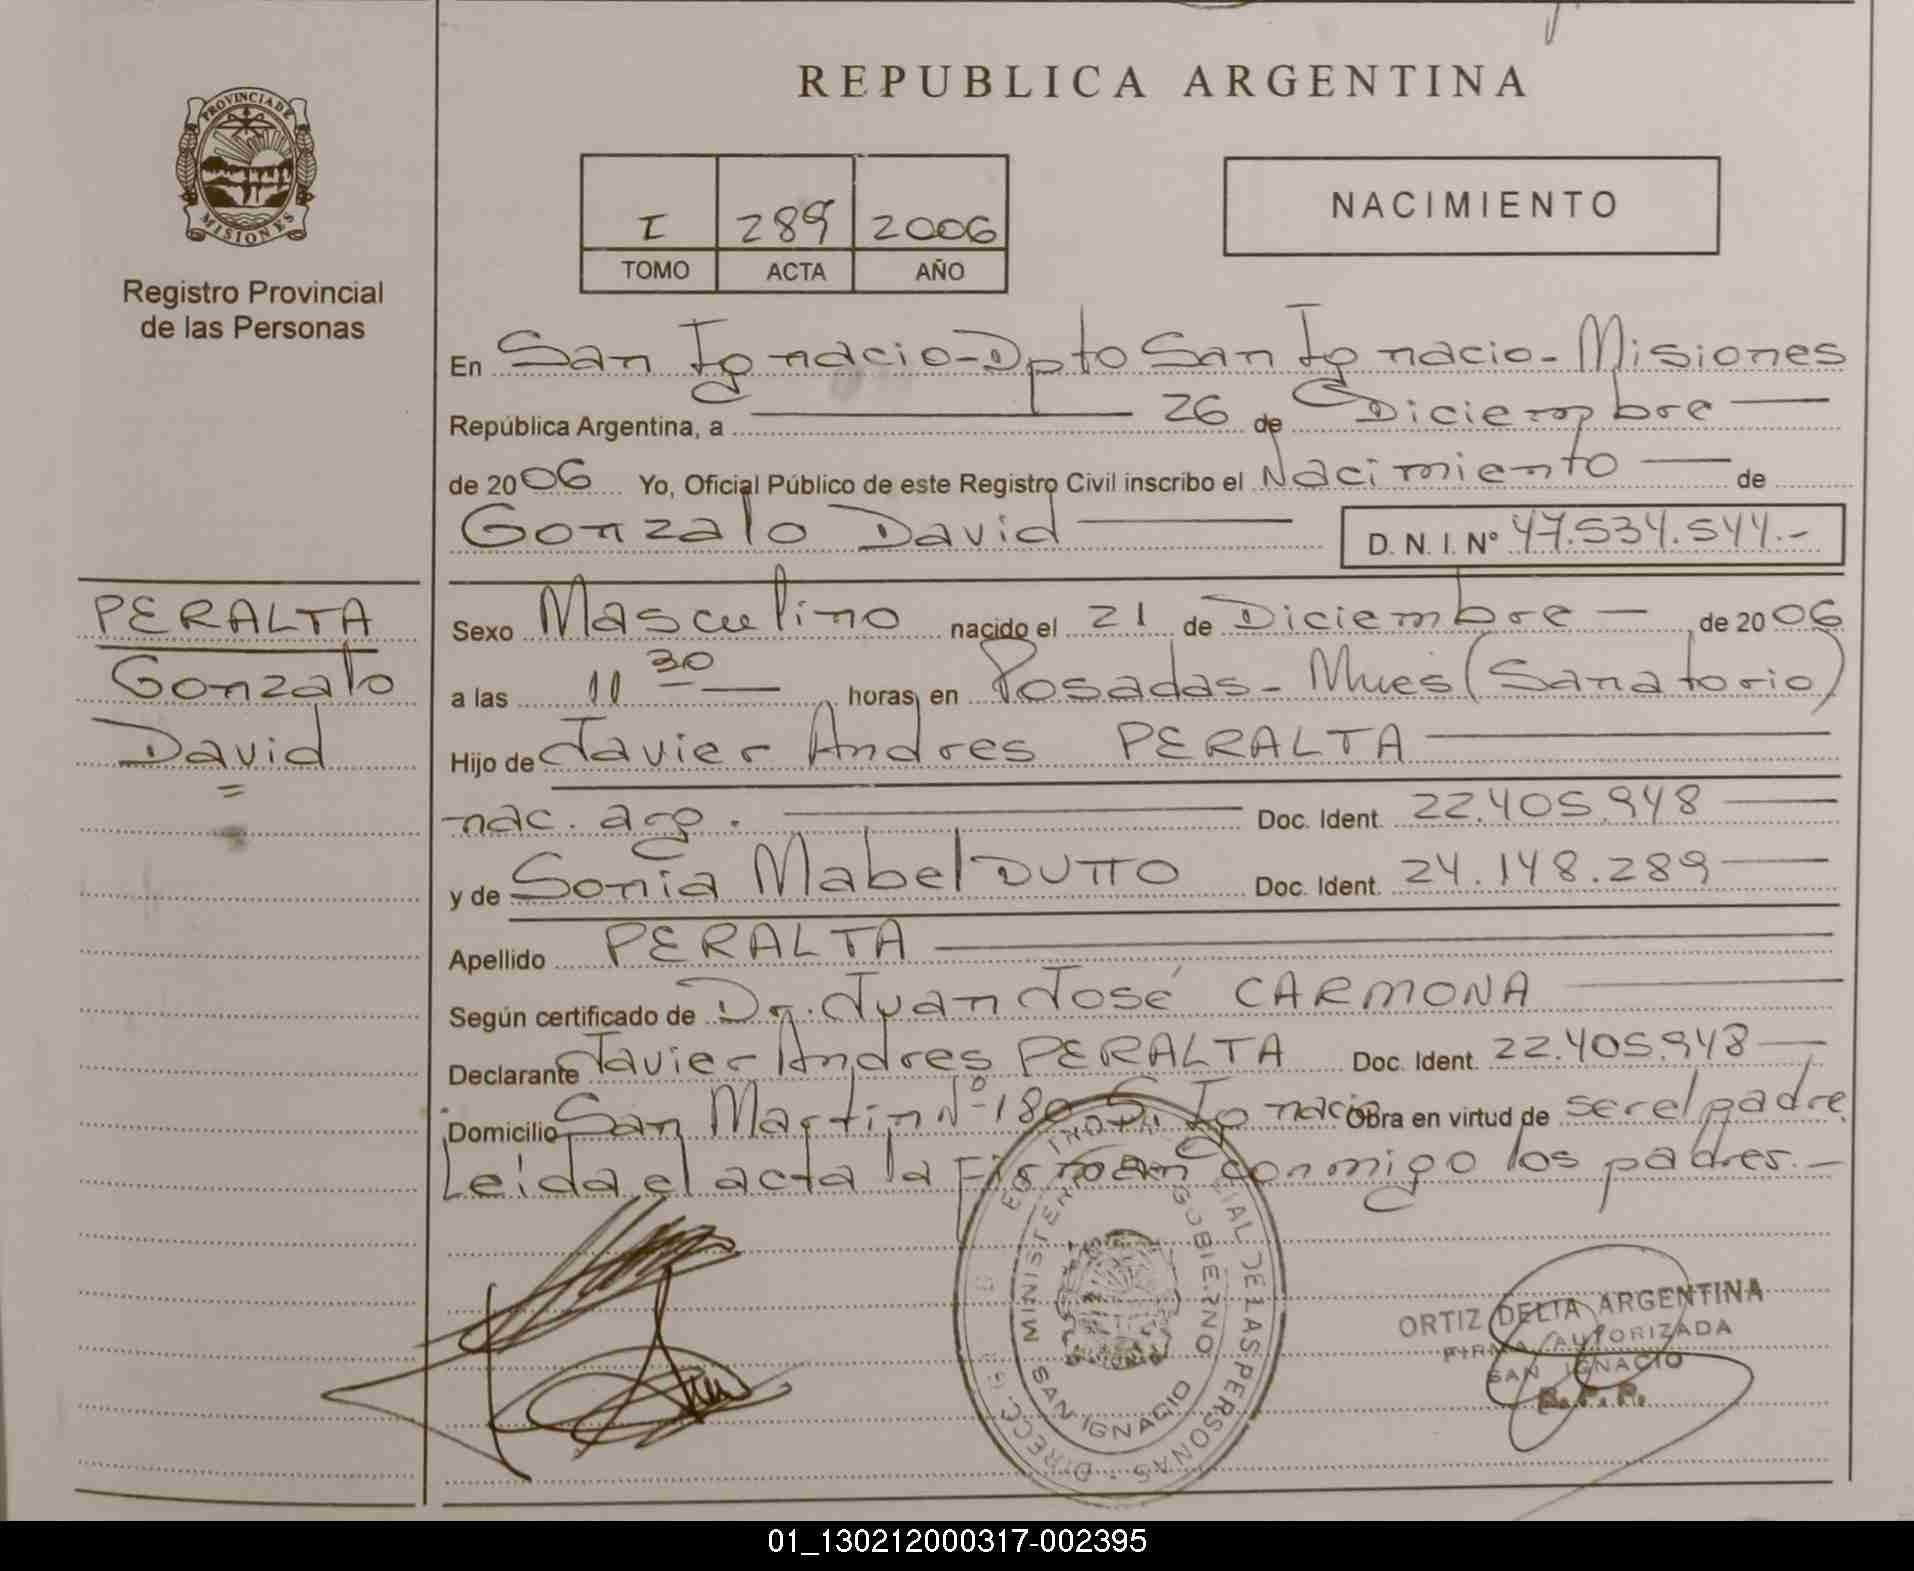 REPUBLICA ARGENTINA
PROVINCIA DE
MISIONES
Registro Provincial
de las Personas
I 289 2006
TOMO ACTA AÑO
NACIMIENTO
En San Ignacio - Dpto San Ignacio - Misiones
República Argentina, a 26 de Diciembre
de 2006 Yo, Oficial Público de este Registro Civil inscribo el Nacimiento de
Gonzalo David D. N. I. Nº 47.534.544.-
PERALTA
Gonzalo
David
Sexo Masculino nacido el 21 de Diciembre de 2006
a las 11 30 horas, en Posadas - Mnes (Sanatorio)
Hijo de Javier Andres PERALTA
nac. arg. Doc. Ident. 22.405.948
y de Sonia Mabel DUTTO Doc. Ident. 24.148.289
Apellido PERALTA
Según certificado de Dr. Juan José CARMONA
Declarante Javier Andres PERALTA Doc. Ident. 22.405.948
Domicilio San Martin Nº 180 S. Ignacio Obra en virtud de ser el padre.
Leida el acta la Firman conmigo los padres.-
MINISTER GOBIERNO
SAN IGNACIO
DIRECC. G CIAL DE LAS PERSONAS
ORTIZ DELIA ARGENTINA
FIRMA AUTORIZADA
SAN IGNACIO
R.P.P.
01_130212000317-002395